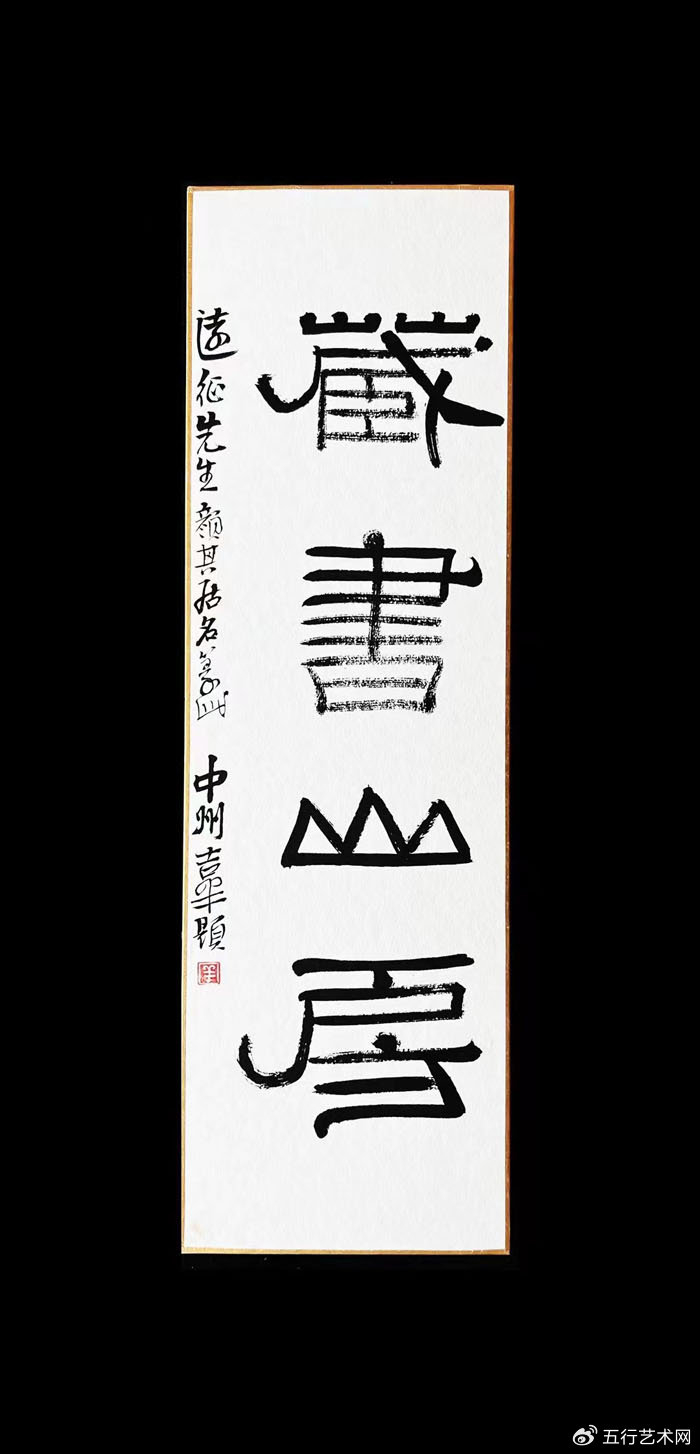 藏書山房
遠征先生顏其居名篆此
中州吉平題
五行艺术网